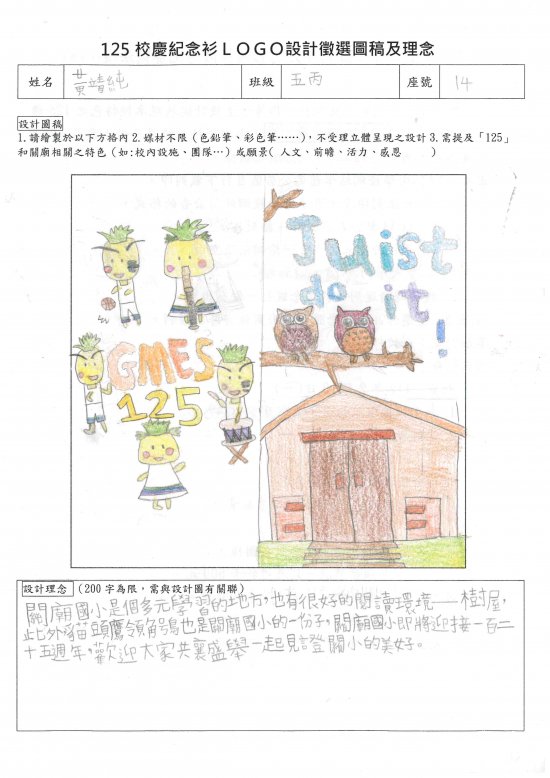 125 校慶紀念衫ＬＯＧＯ設計徵選圖稿及理念
姓名 黃靖純 班級 五丙 座號 14
設計圖稿
1.請繪製於以下方格內 2.媒材不限（色鉛筆、彩色筆……），不受理立體呈現之設計 3.需提及「125」
和關廟相關之特色（如:校內設施、團隊…）或願景（人文、前瞻、活力、感恩　　）
Juist
do it!
GMES
125
設計理念 (200 字為限，需與設計圖有關聯)
關廟國小是個多元學習的地方，也有很好的閱讀環境──樹屋，
此外貓頭鷹領角鴞也是關廟國小的一份子，關廟國小即將迎接一百二
十五週年，歡迎大家共襄盛舉一起見證關小的美好。